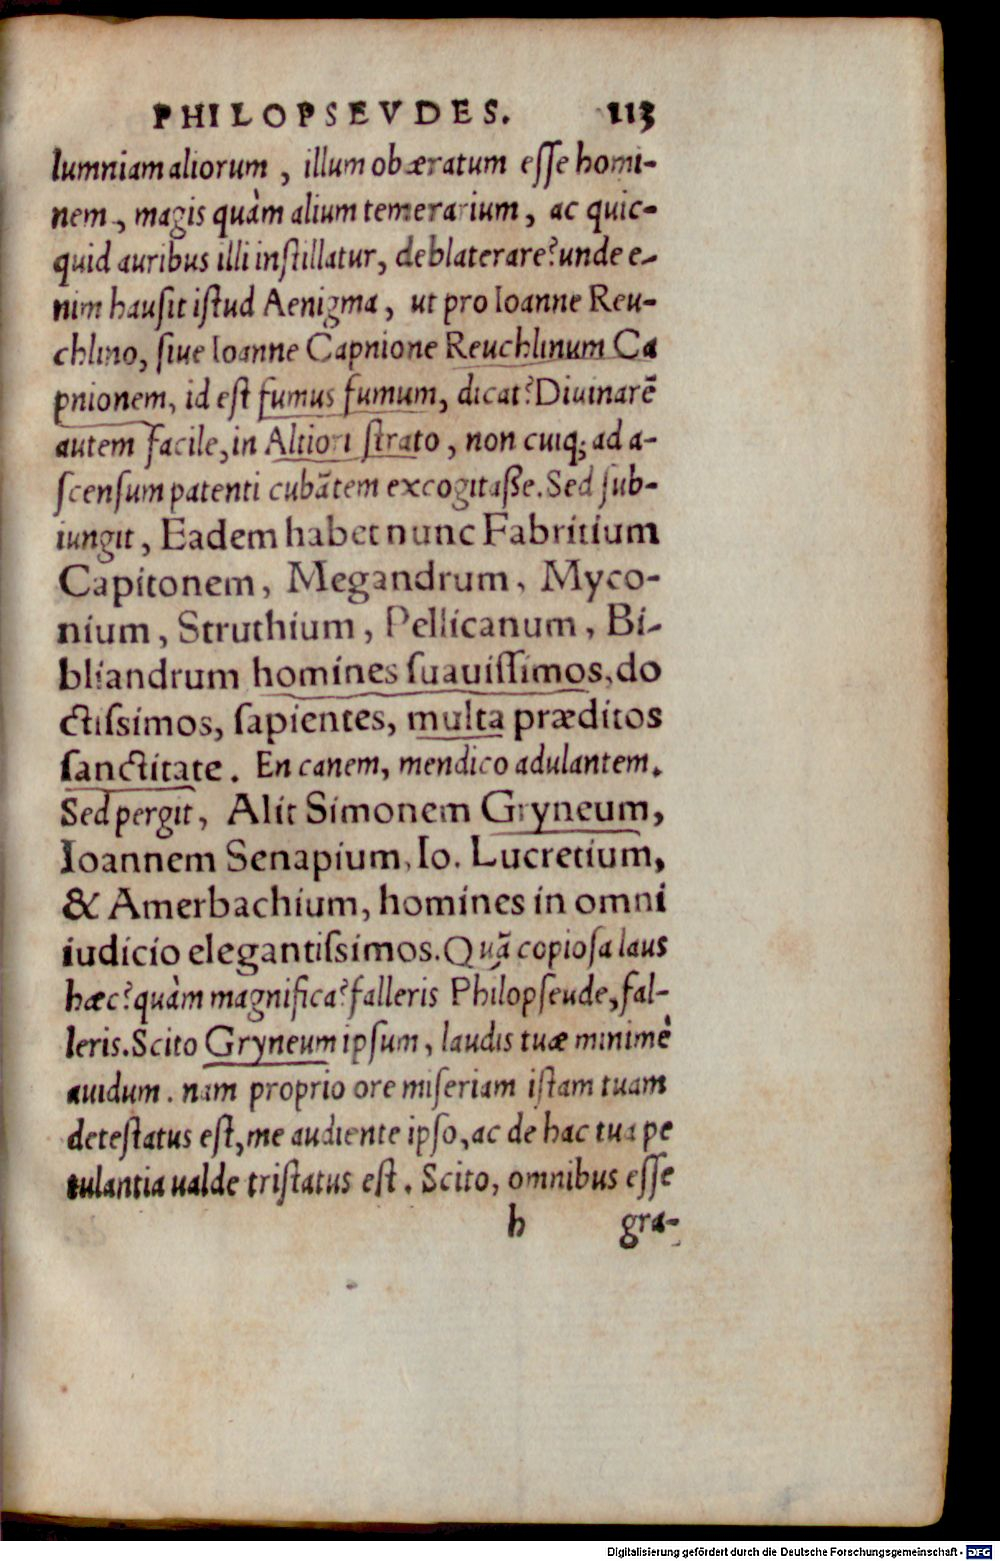 PHILOPSEVDES. 113
lumniam aliorum, illum obæratum esse homi-
nem, magis quàm alium temerarium, ac quic-
quid auribus illi instillatur, deblaterare? unde e-
nim hausit istud Aenigma, ut pro Ioanne Reu-
chlino, siue Ioanne Capnione Reuchlinum Ca
pnionem, id est fumus fumum, dicat? Diuinarē
autem facile, in Altiori strato, non cuiq; ad a-
scensum patenti cubātem excogitaße. Sed sub-
iungit, Eadem habet nunc Fabritium
Capitonem, Megandrum, Myco-
nium, Struthium, Pellicanum, Bi-
bliandrum homines suauissimos, do
ctissimos, sapientes, multa præditos
sanctitate. En canem, mendico adulantem.
Sed pergit, Alit Simonem Gryneum,
Ioannem Senapium, Io. Lucretium,
& Amerbachium, homines in omni
iudicio elegantissimos. Quā copiosa laus
hæc? quàm magnifica? falleris Philopseude, fal-
leris. Scito Gryneum ipsum, laudis tuæ minimè
auidum. nam proprio ore miseriam istam tuam
detestatus est, me audiente ipso, ac de hac tua pe
tulantia ualde tristatus est. Scito, omnibus esse
h gra-
Digitalisierung gefördert durch die Deutsche Forschungsgemeinschaft - DFG